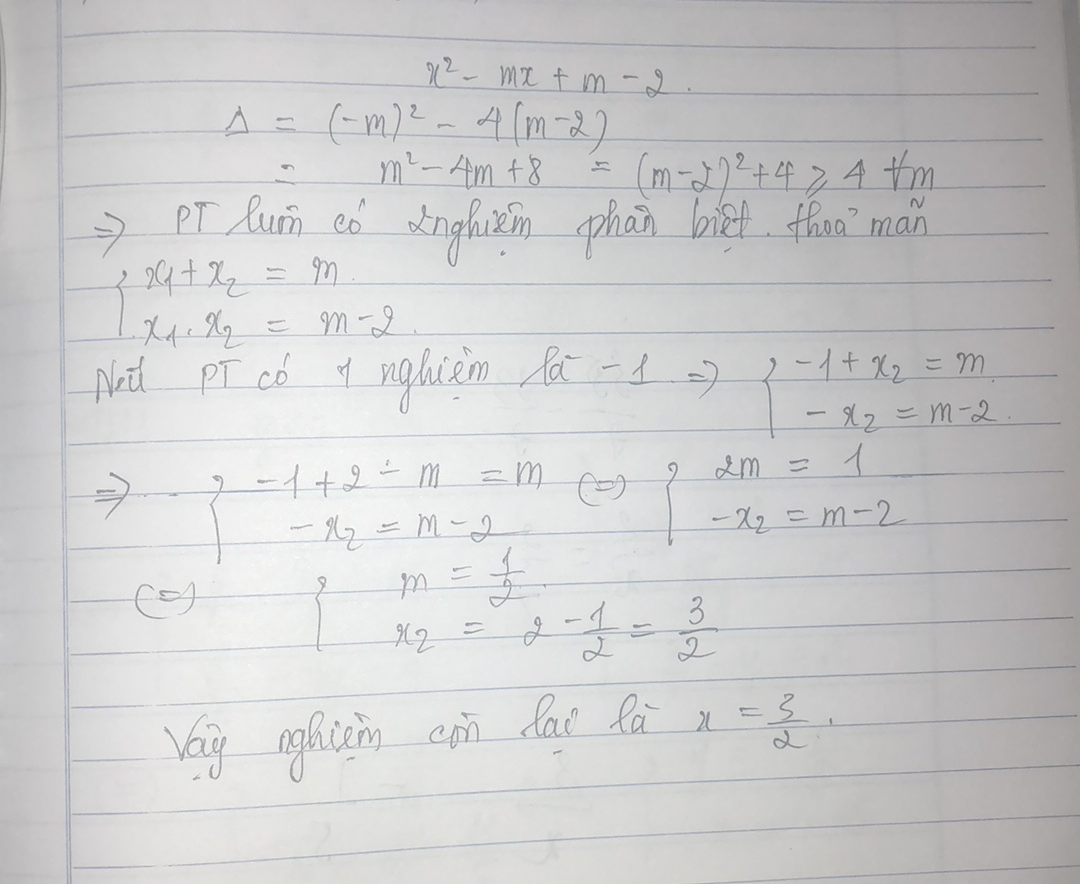 x² - mx + m - 2.
Δ = (-m)² - 4(m-2)
= m² - 4m + 8 = (m-2)² + 4 ⩾ 4 ∀m
=> PT luôn có 2 nghiệm phân biệt. thoả mãn
{ x₁ + x₂ = m.
x₁. x₂ = m - 2.
Nếu PT có 1 nghiệm là -1 => { -1 + x₂ = m
- x₂ = m - 2.
=> { -1 + 2 - m = m (=) { 2m = 1
- x₂ = m - 2 - x₂ = m - 2
(=) { m = 1/2.
x₂ = 2 - 1/2 = 3/2
Vậy nghiệm còn lại là x = 3/2.